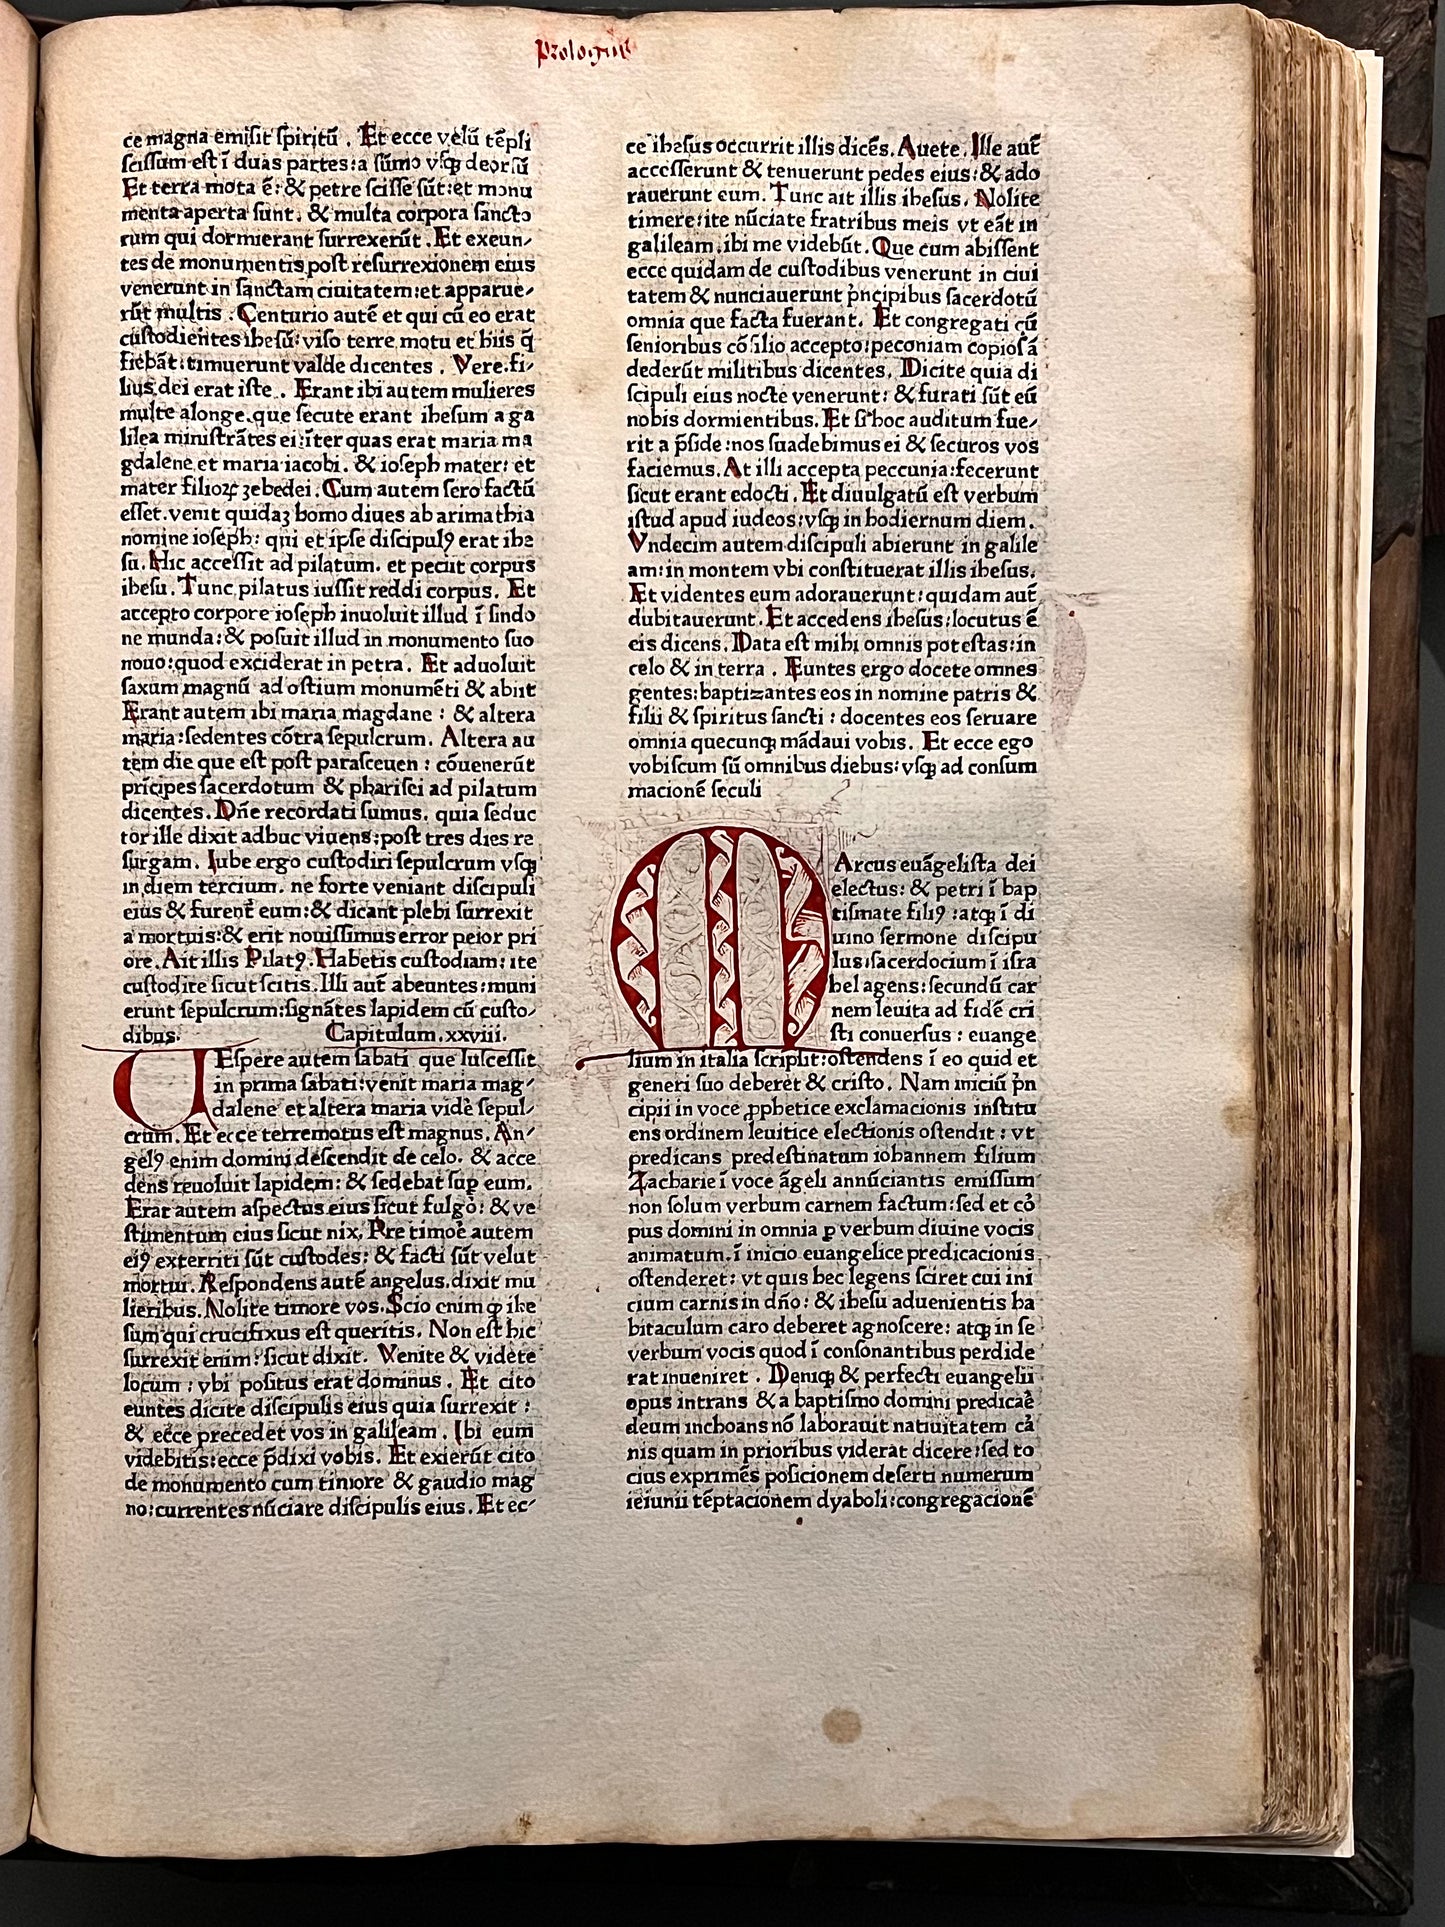 Prologus
ce magna emisit spiritū . Et ecce velū tēpli
scissum est ī duas partes: a sūmo vsꝗ deorsū
Et terra mota ē: & petre scisse sūt: et monu
menta aperta sunt. & multa corpora sancto
rum qui dormierant surrexerūt . Et exeun/
tes de monumentis post resurrexionem eius
venerunt in sanctam ciuitatem: et apparue/
rūt multis . Centurio autē et qui cū eo erat
custodientes ihesū: viso terre motu et hiis q̄
fiebāt: timuerunt valde dicentes . Vere fi/
lius dei erat iste . Erant ibi autem mulieres
multe alonge. que secute erant ihesum a ga
lilea ministrātes ei: īter quas erat maria ma
gdalene et maria iacobi. & ioseph mater: et
mater filioꝝ zebedei . Cum autem sero factū
esset. venit quidaꝫ homo diues ab arimathia
nomine ioseph: qui et ipse discipulꝰ erat ihe
su. Hic accessit ad pilatum. et peciit corpus
ihesu. Tunc pilatus iussit reddi corpus. Et
accepto corpore ioseph inuoluit illud ī sindo
ne munda: & posuit illud in monumento suo
nouo: quod exciderat in petra. Et aduoluit
saxum magnū ad ostium monumēti & abiit
Erant autem ibi maria magdane : & altera
maria: sedentes cōtra sepulcrum. Altera au
tem die que est post parasceuen : cōuenerūt
prīcipes sacerdotum & pharisei ad pilatum
dicentes. Dn̄e recordati sumus. quia seduc
tor ille dixit adhuc viuens: post tres dies re
surgam. Iube ergo custodiri sepulcrum vsꝗ
in diem tercium. ne forte veniant discipuli
eius & furent̄ eum: & dicant plebi surrexit
a mortuis: & erit nouissimus error peior pri
ore. Ait illis Pilatꝰ. Habetis custodiam: ite
custodire sicut scitis. Illi aut̄ abeuntes: muni
erunt sepulcrum: signātes lapidem cū custo/
dibus. Capitulum. xxviii.
VEspere autem sabati que luscessit
in prima sabati: venit maria mag/
dalene et altera maria vidē sepul/
crum. Et ecce terremotus est magnus. An/
gelꝰ enim domini descendit de celo. & acce
dens reuoluit lapidem: & sedebat suꝑ eum.
Erat autem aspectus eius sicut fulgor̄: & ve
stimentum eius sicut nix. Pre timor̄e autem
eiꝰ exterriti sūt custodes: & facti sūt velut
mortui. Respondens autē angelus. dixit mu
lieribus. Nolite timore vos. Scio enim ꝙ ihe
sum qui crucifixus est queritis. Non est hic
surrexit enim: sicut dixit. Venite & videte
locum : vbi positus erat dominus . Et cito
euntes dicite discipulis eius quia surrexit :
& ecce precedet vos in galileam . Ibi eum
videbitis: ecce p̄dixi vobis. Et exierūt cito
de monumento cum timore & gaudio mag
no: currentes nūciare discipulis eius. Et ec/
ce ihesus occurrit illis dicēs. Auete. Ille aut̄
accesserunt & tenuerunt pedes eius: & ado
rauerunt eum. Tunc ait illis ihesus. Nolite
timere: ite nūciate fratribus meis vt eāt in
galileam. ibi me videbūt. Que cum abissent
ecce quidam de custodibus venerunt in ciui
tatem & nunciauerunt p̄ncipibus sacerdotū
omnia que facta fuerant. Et congregati cū
senioribus cōsilio accepto: peconiam copiosā
dederūt militibus dicentes. Dicite quia di
scipuli eius nocte venerunt: & furati sūt eū
nobis dormientibus. Et si hoc auditum fue/
rit a p̄side: nos suadebimus ei & securos vos
faciemus. At illi accepta peccunia: fecerunt
sicut erant edocti . Et diuulgatū est verbum
istud apud iudeos: vsꝗ in hodiernum diem.
Vndecim autem discipuli abierunt in galile
am: in montem vbi constituerat illis ihesus.
Et videntes eum adorauerunt: quidam aut̄
dubitauerunt. Et accedens ihesus: locutus ē
eis dicens. Data est mihi omnis potestas: in
celo & in terra . Euntes ergo docete omnes
gentes: baptizantes eos in nomine patris &
filii & spiritus sancti : docentes eos seruare
omnia quecunꝗ mādaui vobis. Et ecce ego
vobiscum sū omnibus diebus: vsꝗ ad consum
macionē seculi
MArcus euāgelista dei
electus: & petri ī bap
tismate filiꝰ: atꝗ ī di
uino sermone discipu
lus: sacerdocium ī isra
hel agens: secundū car
nem leuita ad fidē cri
sti conuersus : euange
lium in italia scripsit: ostendens ī eo quid et
generi suo deberet & cristo. Nam iniciū p̄n
cipii in voce ꝓphetice exclamacionis institu
ens ordinem leuitice electionis ostendit : vt
predicans predestinatum iohannem filium
Zacharie ī voce āgeli annūciantis emissum
non solum verbum carnem factum: sed et cor̄
pus domini in omnia ꝑ verbum diuine vocis
animatum. ī inicio euangelice predicacionis
ostenderet: vt quis hec legens sciret cui ini
cium carnis in dn̄o: & ihesu aduenientis ha
bitaculum caro deberet agnoscere: atꝗ in se
verbum vocis quod ī consonantibus perdide
rat inueniret . Deniꝗ & perfecti euangelii
opus intrans & a baptismo domini predicar̄e
deum inchoans nō laborauit natiuitatem car̄
nis quam in prioribus viderat dicere: sed to
cius exprimēs posicionem deserti numerum
ieiunii tēptacionem dyaboli: congregacionē